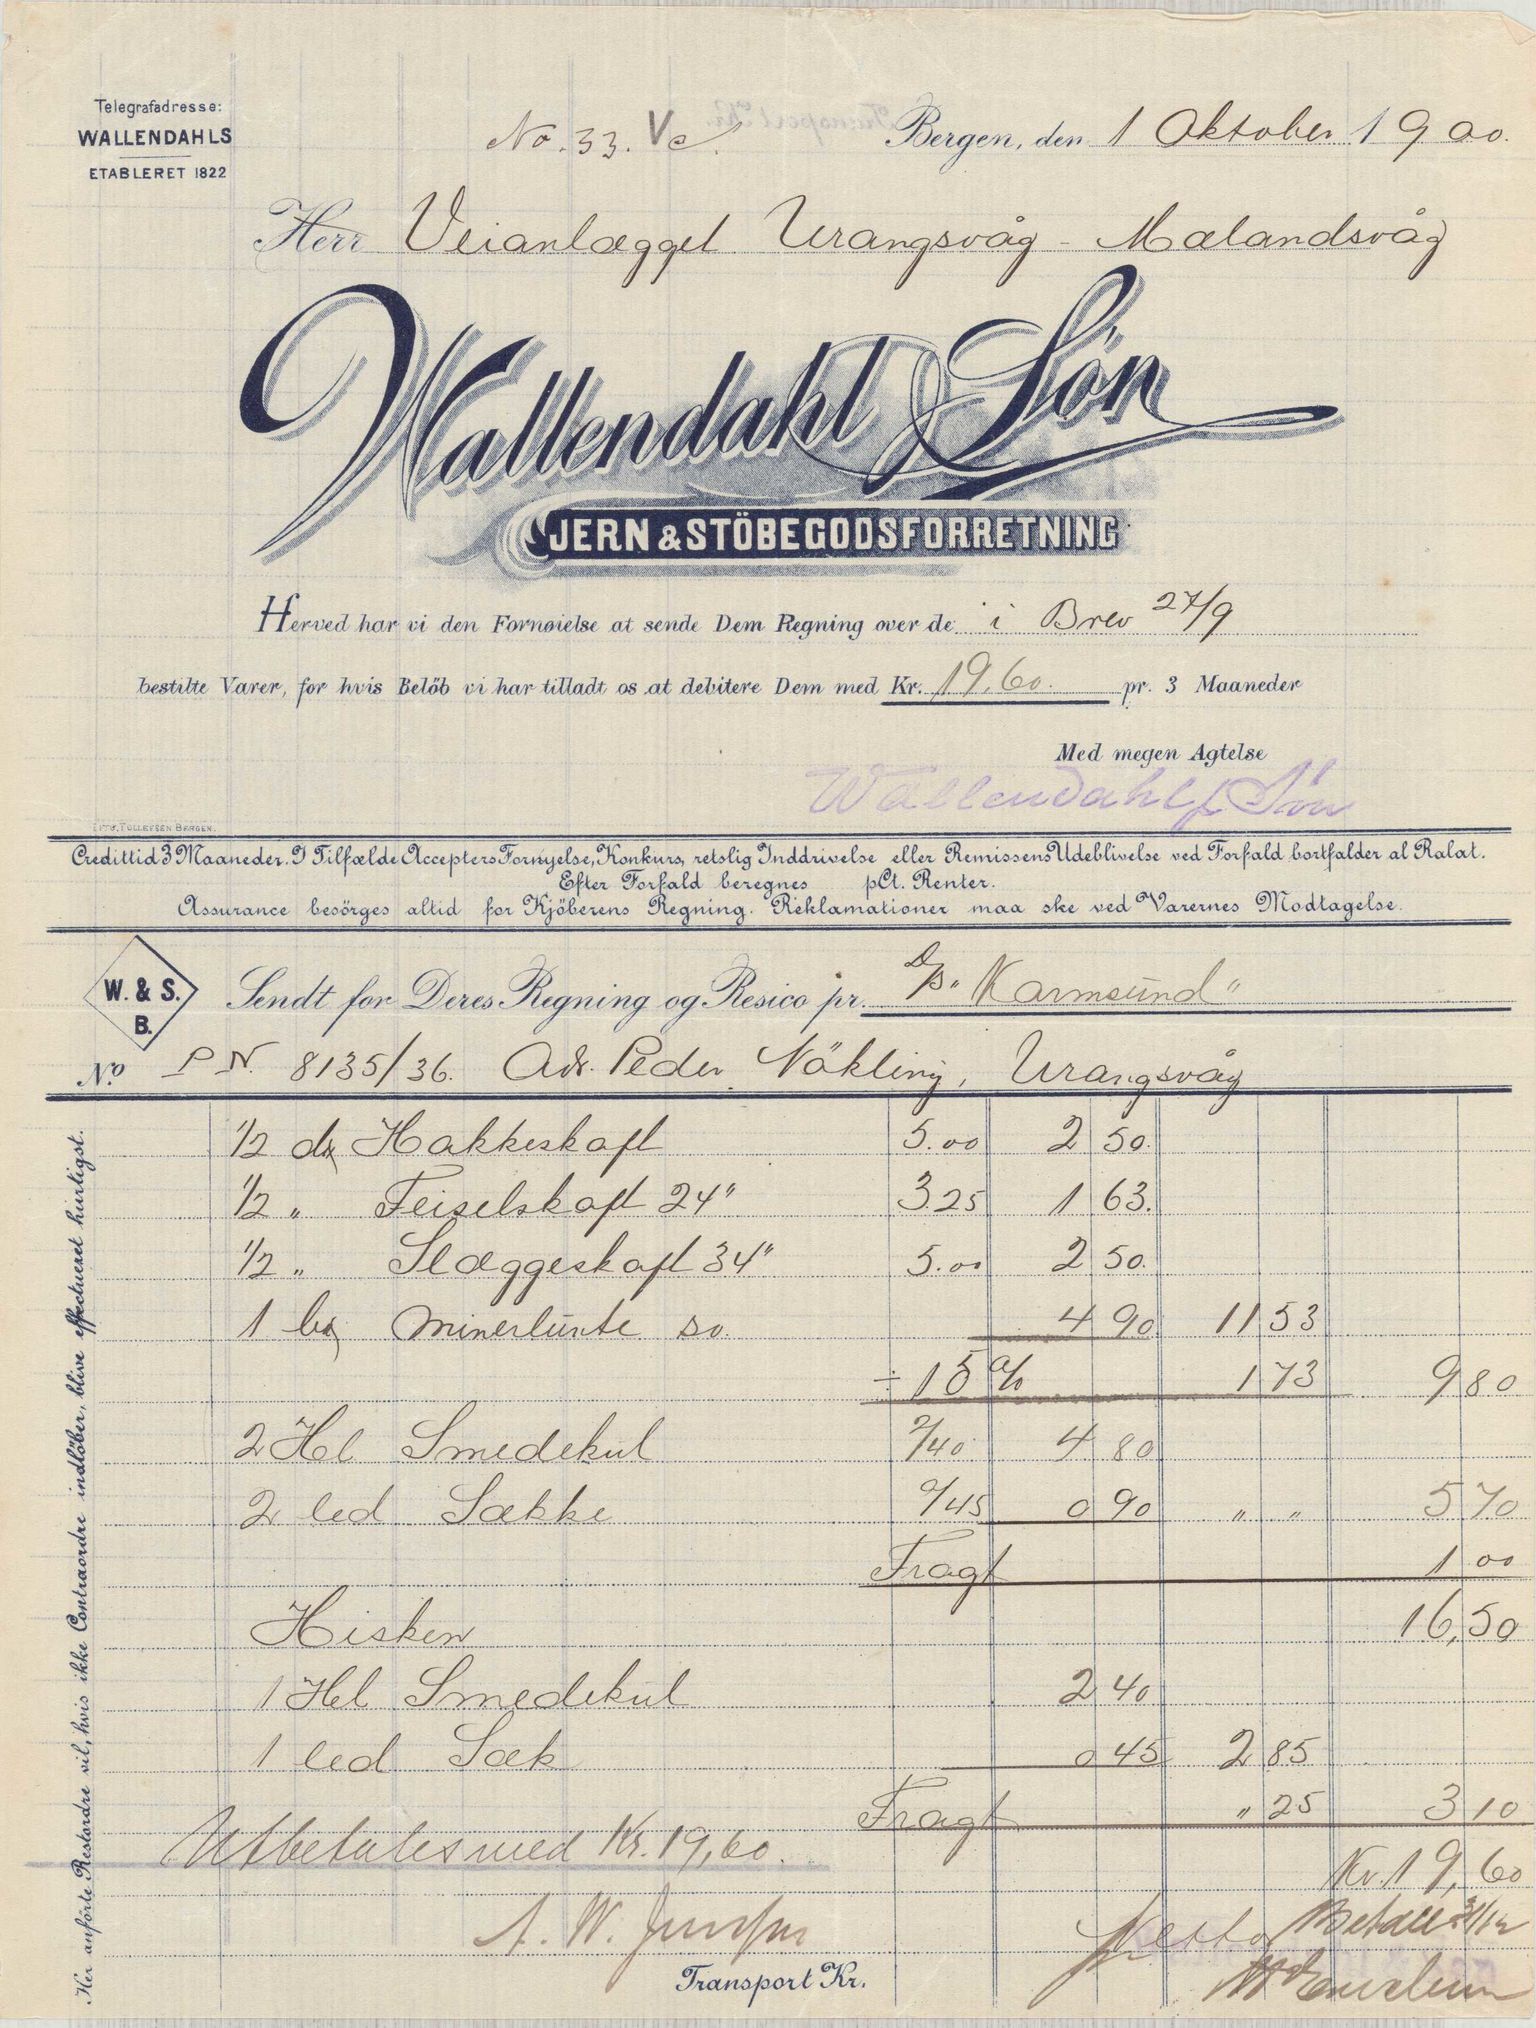 Telegrafadresse:
WALLENDAHLS
ETABLERET 1822
No. 33. Vc.
Bergen, den 1 Oktober 1900.
Herr Veianlægget Urangsvåg - Mælandsvåg
Wallendahl & Søn
JERN & STÖBEGODSFORRETNING
Herved har vi den Fornøielse at sende Dem Regning over de i Brev 27/9
bestilte Varer, for hvis Belöb vi har tilladt os at debitere Dem med Kr. 19,60. pr. 3 Maaneder
Med megen Agtelse
Wallendahl & Søn
LITH. TOLLEFSEN BERGEN.
Credittid 3 Maaneder. I Tilfælde Accepters Fornyelse, Konkurs, retslig Inddrivelse eller Remissens Udeblivelse ved Forfald bortfalder al Rabat.
Efter Forfald beregnes pCt. Renter.
Assurance besörges altid for Kjöberens Regning. Reklamationer maa ske ved Varernes Modtagelse.
W. & S.
B.
Sendt for Deres Regning og Resico pr. D/S "Karmsund"
No. P N. 8135/36. Adr. Peder Nökling, Urangsvåg
1/2 dz Hakkeskaft 5.00 2 50.
1/2 " Feiselskaft 24" 3.25 1 63.
1/2 " Slæggeskaft 34" 5.00 2 50.
1 bx Minerlunte so. 4 90 11 53
÷ 15 % 1 73 9 80
2 Hl Smedekul 2/40 4 80
2 led Sække 0/45 0 90 " " 5 70
Fragt 1 00
16,50
Hisken
1 Hl Smedekul 2 40
1 led Sæk 0 45 2 85
Fragt " 25 3 10
Utbetales med Kr. 19,60.
Kr. 19,60
Netto
Betalt 31/12
A. W.
Transport Kr.
Her anförte Restordre vil, hvis ikke Contraordre indlöber, blive effectueret hurtigst.